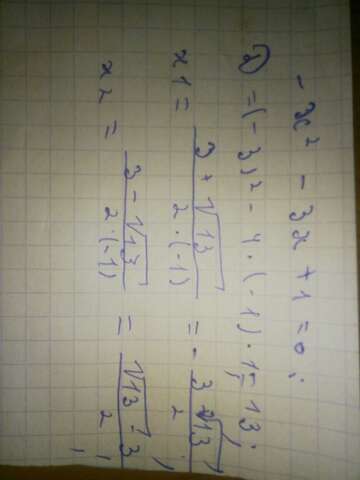 - 3x² - 3x + 1 = 0;
D = (-3)² - 4·(-1)·1 = 13;
x1 = (3 + √13)/(2·(-1)) = - (3+√13)/2;
x2 = (3 - √13)/(2·(-1)) = (√13 - 3)/2;